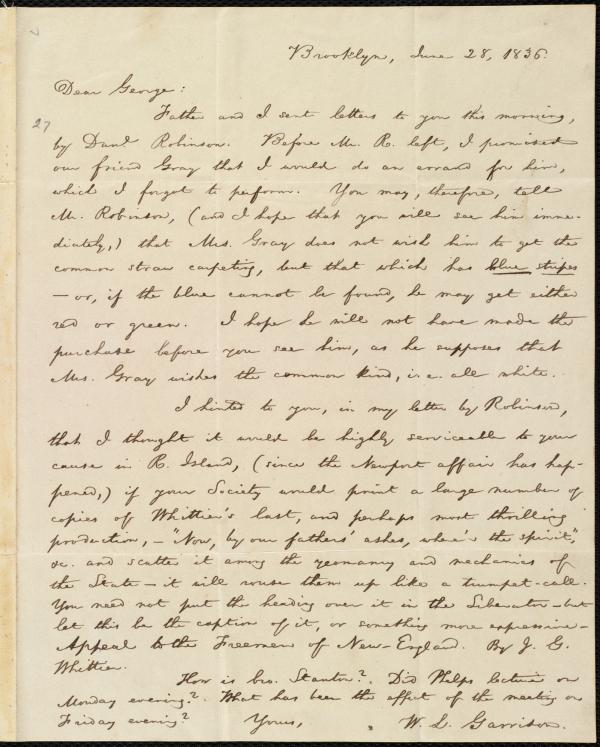 Brooklyn, June 28, 1836.
Dear George:
27
Father and I sent letters to you this morning,
by Danl Robinson. Before Mr. R. left, I promised
our friend Gray that I would do an errand for him,
which I forgot to perform. You may, therefore, tell
Mr. Robinson, (and I hope that you will see him imme-
diately,) that Mrs. Gray does not wish him to get the
common straw carpeting, but that which has blue stripes
— or, if the blue cannot be found, he may get either
red or green. I hope he will not have made the
purchase before you see him, as he supposes that
Mrs. Gray wishes the common kind, i. e. all white.
I hinted to you, in my letter by Robinson,
that I thought it would be highly serviceable to your
cause in R. Island, (since the Newport affair has hap-
pened,) if your Society would print a large number of
copies of Whittier's last, and perhaps most thrilling
production, — "Now, by our fathers' ashes, where's the spirit",
&c. and scatter it among the yeomanry and mechanics of
the State — it will rouse them up like a trumpet-call.
You need not put the heading over it in the Liberator — but
let this be the caption of it, or something more expressive —
Appeal to the Freemen of New-England. By J. G.
Whittier.
How is bro. Stanton? Did Phelps lecture on
Monday evening? What has been the effect of the meeting on
Friday evening? Yours, W. L. Garrison.